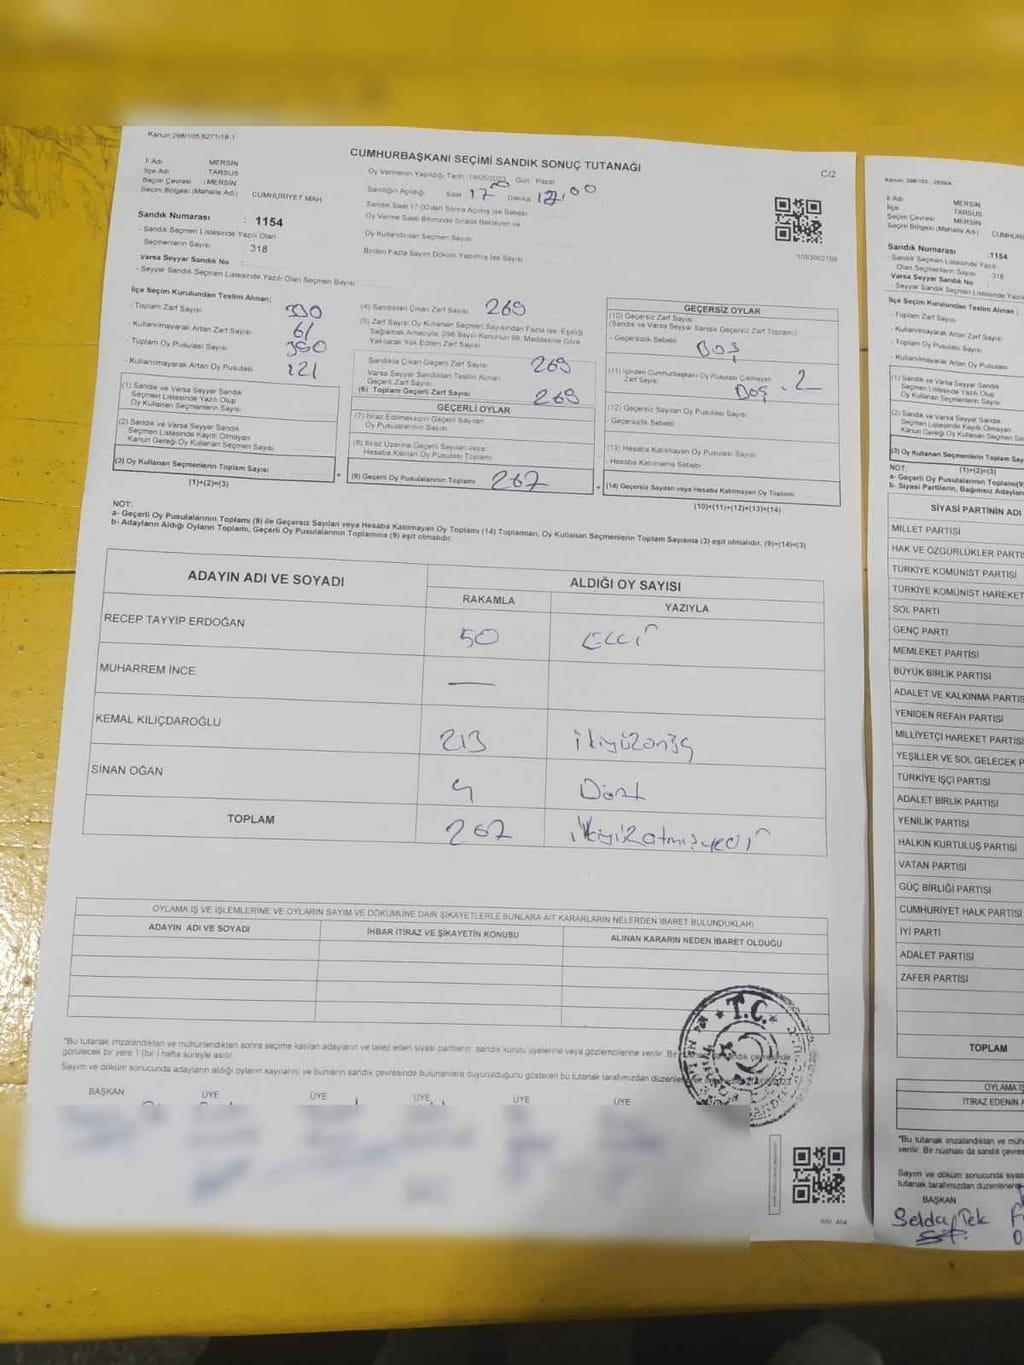 Kanun:298/105,6271/18-1
CUMHURBAŞKANI SEÇİMİ SANDIK SONUÇ TUTANAĞI
C/2
İl Adı : MERSİN
İlçe Adı : TARSUS
Seçim Çevresi : MERSİN
Seçim Bölgesi (Mahalle Adı) CUMHURİYET MAH.
Sandık Numarası : 1154
- Sandık Seçmen Listesinde Yazılı Olan
Seçmenlerin Sayısı : 318
Varsa Seyyar Sandık No :
- Seyyar Sandık Seçmen Listesinde Yazılı Olan Seçmen Sayısı
Oy Vermenin Yapıldığı Tarih :14/05/2023 Gün : Pazar
Sandığın Açıldığı Saat 17 Dakika
Sandık Saat 17.00'den Sonra Açılmış İse Sebebi
Oy Verme Saati Bitiminde Sırada Bekleyen ve
Oy Kullandırılan Seçmen Sayısı
Birden Fazla Sayım Döküm Yapılmış İse Sayısı
İlçe Seçim Kurulundan Teslim Alınan;
- Toplam Zarf Sayısı
- Kullanılmayarak Artan Zarf Sayısı 61
- Toplam Oy Pusulası Sayısı
- Kullanılmayarak Artan Oy Pusulası 121
(1) Sandık ve Varsa Seyyar Sandık
Seçmen Listesinde Yazılı Olup
Oy Kullanan Seçmenlerin Sayısı
(2) Sandık ve Varsa Seyyar Sandık
Seçmen Listesinde Kayıtlı Olmayan
Kanun Gereği Oy Kullanan Seçmen Sayısı
(3) Oy Kullanan Seçmenlerin Toplam Sayısı
(1)+(2)=(3)
(4) Sandıktan Çıkan Zarf Sayısı 269
(5) Zarf Sayısı Oy Kullanan Seçmen Sayısından Fazla İse; Eşitliği
Sağlamak Amacıyla; 298 Sayılı Kanunun 98. Maddesine Göre
Yakılarak Yok Edilen Zarf Sayısı
Sandıkta Çıkan Geçerli Zarf Sayısı 269
Varsa Seyyar Sandıktan Teslim Alınan
Geçerli Zarf Sayısı
(6) Toplam Geçerli Zarf Sayısı 269
GEÇERLİ OYLAR
(7) İtiraz Edilmeksizin Geçerli Sayılan
Oy Pusulalarının Sayısı
(8) İtiraz Üzerine Geçerli Sayılan veya
Hesaba Katılan Oy Pusulası Toplamı
(9) Geçerli Oy Pusulalarının Toplamı 267
GEÇERSİZ OYLAR
(10) Geçersiz Zarf Sayısı
(Sandık ve Varsa Seyyar Sandık Geçersiz Zarf Toplamı)
- Geçersizlik Sebebi BOŞ
(11) İçinden Cumhurbaşkanı Oy Pusulası Çıkmayan
Zarf Sayısı Boş - 2
(12) Geçersiz Sayılan Oy Pusulası Sayısı
- Geçersizlik Sebebi
(13) Hesaba Katılmayan Oy Pusulası Sayısı
- Hesaba Katılmama Sebebi
(14) Geçersiz Sayılan veya Hesaba Katılmayan Oy Toplamı
(10)+(11)+(12)+(13)=(14)
NOT:
a- Geçerli Oy Pusulalarının Toplamı (9) ile Geçersiz Sayılan veya Hesaba Katılmayan Oy Toplamı (14) Toplamları, Oy Kullanan Seçmenlerin Toplam Sayısına (3) eşit olmalıdır. (9)+(14)=(3)
b- Adayların Aldığı Oyların Toplamı, Geçerli Oy Pusulalarının Toplamına (9) eşit olmalıdır.
ADAYIN ADI VE SOYADI
ALDIĞI OY SAYISI
RAKAMLA YAZIYLA
RECEP TAYYİP ERDOĞAN 50 Elli
MUHARREM İNCE —
KEMAL KILIÇDAROĞLU 213 ikiyüzonüç
SİNAN OĞAN 4 Dört
TOPLAM 267 ikiyüzatmışyedi
OYLAMA İŞ VE İŞLEMLERİNE VE OYLARIN SAYIM VE DÖKÜMÜNE DAİR ŞİKAYETLERLE BUNLARA AİT KARARLARIN NELERDEN İBARET BULUNDUKLARI
ADAYIN ADI VE SOYADI İHBAR İTİRAZ VE ŞİKAYETİN KONUSU ALINAN KARARIN NEDEN İBARET OLDUĞU
*Bu tutanak imzalandıktan ve mühürlendikten sonra seçime katılan adayların ve talep eden siyasi partilerin sandık kurulu üyelerine veya gözlemcilerine verilir. Bir
görülecek bir yere 1 (bir) hafta süreyle asılır.
Sayım ve döküm sonucunda adayların aldığı oyların sayılarını ve bunların sandık çevresinde bulunanlara duyurulduğunu gösteren bu tutanak tarafımızdan
BAŞKAN ÜYE ÜYE ÜYE ÜYE ÜYE
T.C.
İl Adı : MERSİN
İlçe : TARSUS
Seçim Çevresi : MERSİN
Seçim Bölgesi (Mahalle Adı) :
Sandık Numarası :1154
- Sandık Seçmen Listesinde Yazılı
Olan Seçmenlerin Sayısı :318
Varsa Seyyar Sandık No :
- Seyyar Sandık Seçmen Listesinde Yazılı
İlçe Seçim Kurulundan Teslim Alınan ;
- Toplam Zarf Sayısı
- Kullanılmayarak Artan Zarf Sayısı
- Toplam Oy Pusulası Sayısı
- Kullanılmayarak Artan Oy Pusulası
(1) Sandık ve Varsa Seyyar Sandık
Seçmen Listesinde Yazılı Olup
Oy Kullanan Seçmenlerin Sayısı
(2) Sandık ve Varsa Seyyar Sandık
Seçmen Listesinde Kayıtlı Olmayan
Kanun Gereği Oy Kullanan
(3) Oy Kullanan Seçmenlerin Toplam
(1)+(2)=(3)
NOT:
a- Geçerli Oy Pusulalarının
b- Siyasi Partilerin, Bağımsız
SİYASİ PARTİNİN ADI
MİLLET PARTİSİ
HAK VE ÖZGÜRLÜKLER
TÜRKİYE KOMÜNİST PARTİSİ
TÜRKİYE KOMÜNİST HAREKET
SOL PARTİ
GENÇ PARTİ
MEMLEKET PARTİSİ
BÜYÜK BİRLİK PARTİSİ
ADALET VE KALKINMA
YENİDEN REFAH PARTİSİ
MİLLİYETÇİ HAREKET
YEŞİLLER VE SOL GELECEK P
TÜRKİYE İŞÇİ PARTİSİ
ADALET BİRLİK PARTİSİ
YENİLİK PARTİSİ
HALKIN KURTULUŞ PARTİSİ
VATAN PARTİSİ
GÜÇ BİRLİĞİ PARTİSİ
CUMHURİYET HALK PARTİSİ
İYİ PARTİ
ADALET PARTİSİ
ZAFER PARTİSİ
TOPLAM
OYLAMA İŞ
İTİRAZ EDENİN
*Bu tutanak imzalandıktan ve
verilir. Bir nüshası da sandık
Sayım ve döküm sonucunda
tutanak tarafımızdan
BAŞKAN
Selda Tek